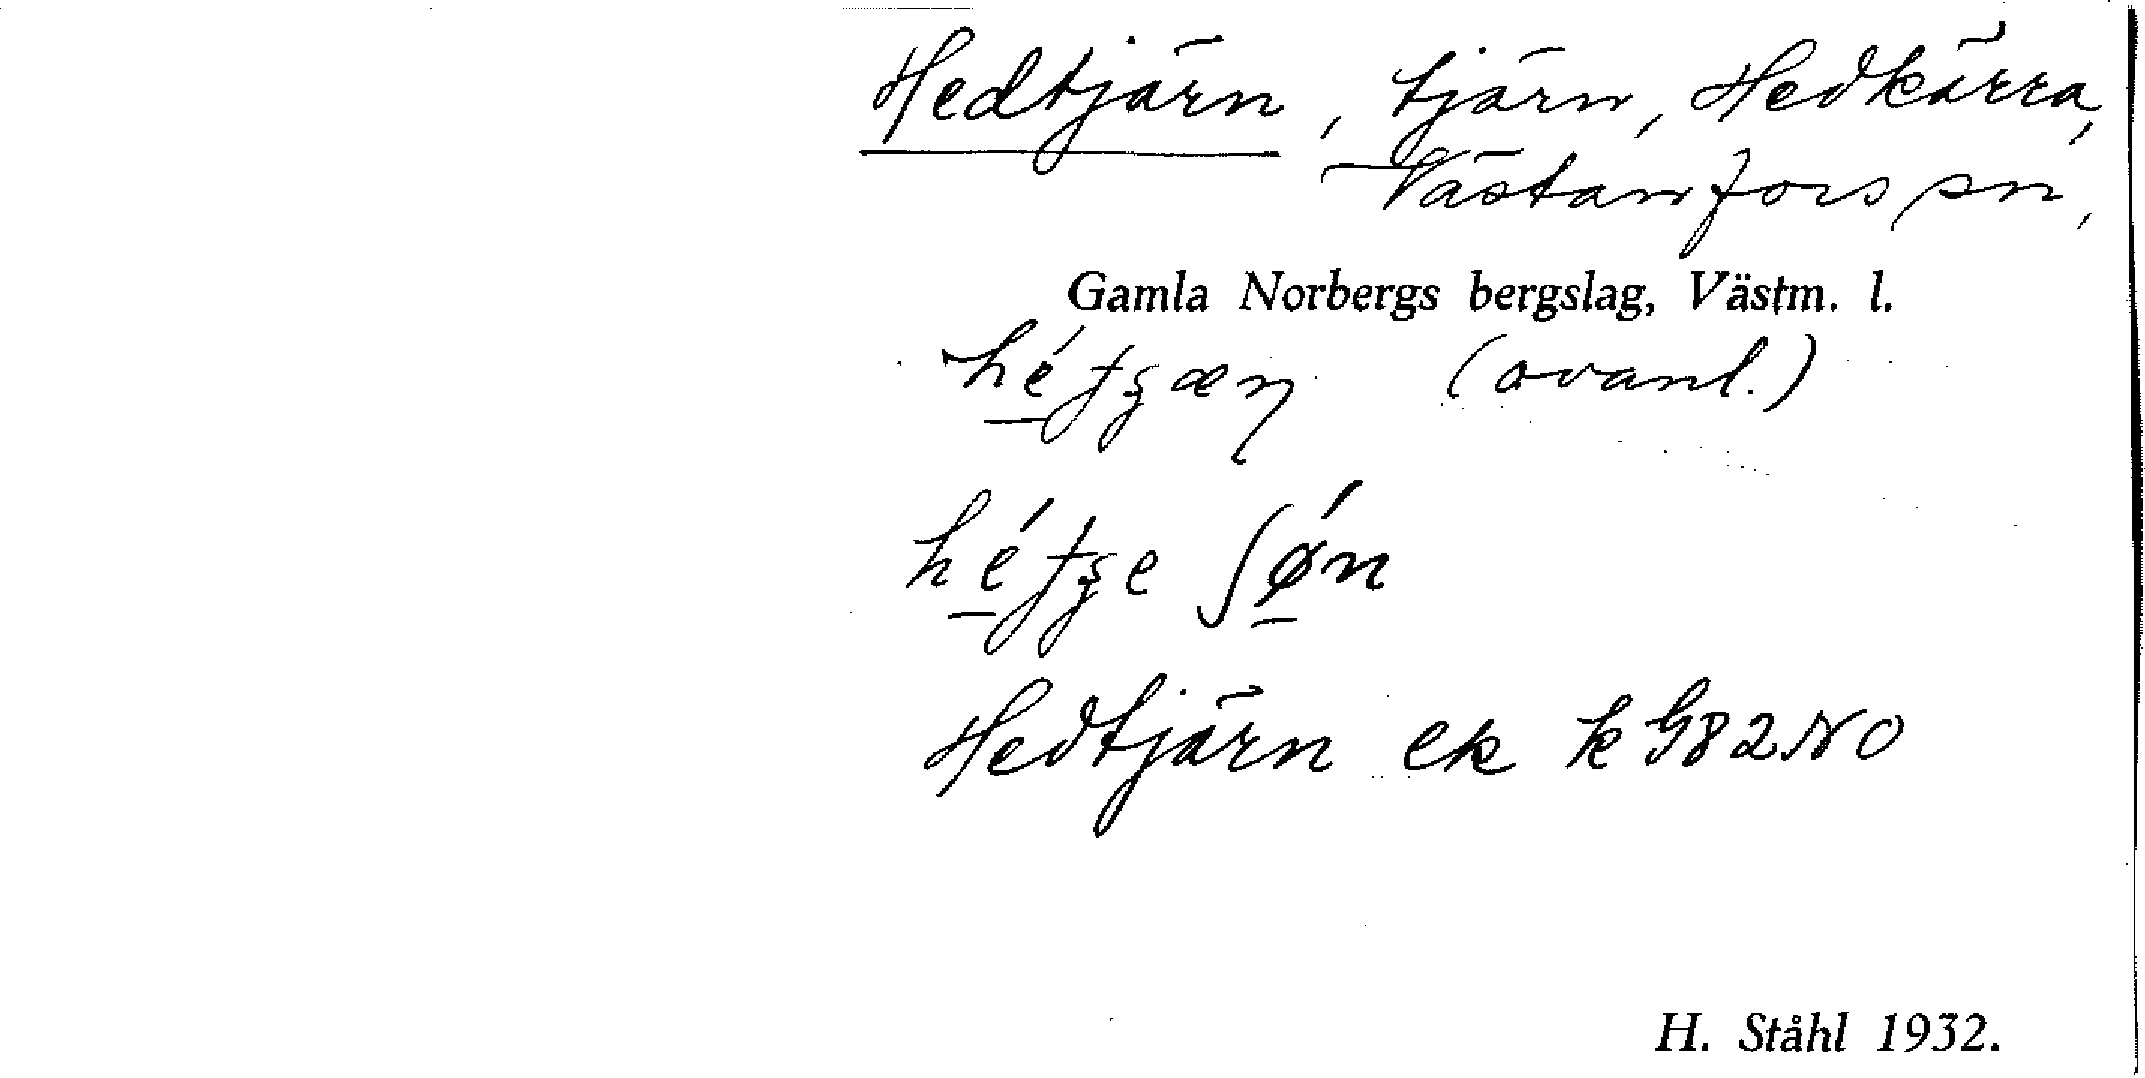 Hedtjärn, tjärn, Hedkärra,
Västanfors sn,
Gamla Norbergs bergslag, Västm. l.
(ovanl.)
Hedtjärn ek k 982 NO
H. Ståhl 1932.